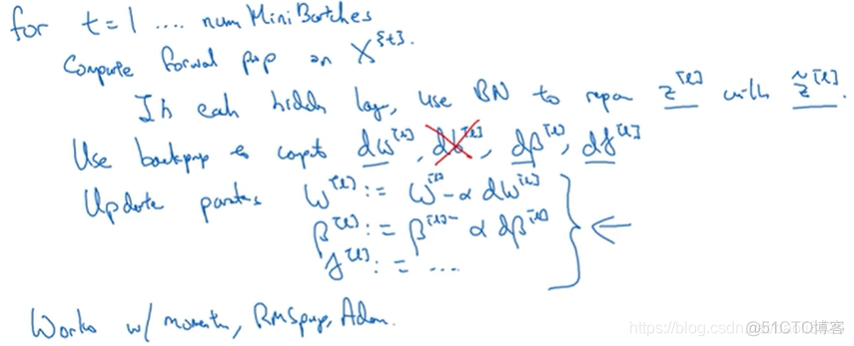 for t = 1 .... num Mini Batches
Compute forward prop on X^{t}.
In each hidden layer, use BN to repar z^[l] with z̃^[l].
Use backprop to compute dw^[l], db^[l], dβ^[l], dγ^[l]
Update params w^[l] := w^[l] - α dw^[l]
β^[l] := β^[l] - α dβ^[l]
γ^[l] := ....
Works w/ momentum, RMSprop, Adam.
https://blog.csdn @51CTO博客